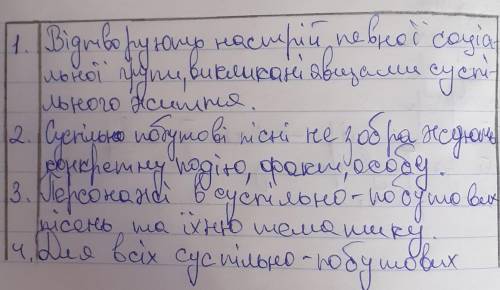 1. Відтворують настрій певної соціа-
льної групи, викликані явищами суспі-
льного життя.
2. Суспільно побутові пісні не зображують
конкретну подію, факт, особу.
3. Персонажі в суспільно-побутових
пісень та їхню тематику.
4. Для всіх суспільно-побутових